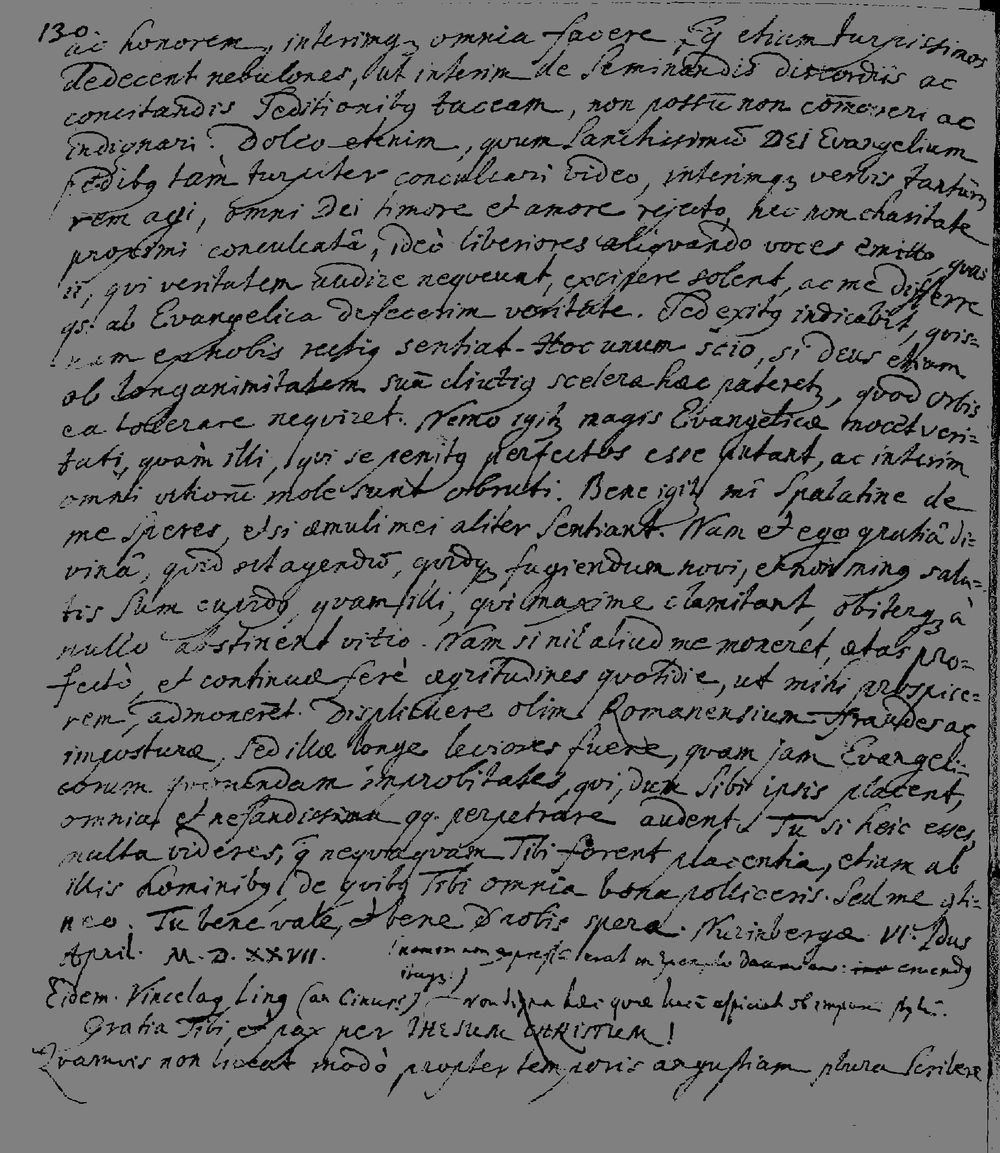 130.
ac honorem, interimqʒ omnia facere, Eq etium turpissimos
dedecent nebulones, ut interim de seminandis discordiis ac
concitandis Seditionibq taceam, non possū non com̄overi ac
indignari. Doleo etenim, quum Sanctissimū DEI Evangelium
pedibq tàm turpiter conculcari video, interimqʒ verbis tantūm
rem agi, omni Dei timore et amore rejecto, nec non charitate
proximi conculcatâ, ideò liberiores aliquando voces emitto, quas
ii, qui veritatem audire nequeunt, excipere solent, ac me differre
qs. ab Evangelica defecerim veritate. Sed exitq indicabit, quis-
nam ex nobis rectiq sentiat. Hoc unum scio, si Deus etiam
ob longanimitatem suā diutiq scelera hæc pateretʒ, quod orbis
ea tolerare nequiret. Nemo igitʒ magis Evangelicæ nocet veri-
tati, quàm illi, qui se penitq perfectos esse putant, ac interim
omni vitiorū mole sunt obruti. Bene igitʒ mi Spalatine de
me speres, etsi æmuli mei aliter sentiant. Nam et ego gratiâ di-
vinâ, quid sit agendū, quidqʒ fugiendum novi, et non minq salu-
tis sum cupidq, quam illi, qui maxime clamitant, obiterqʒ à
nullo abstinent vitio. Nam si nil aliud me moneret, ætas pro-
fectò, et continuæ ferè ægritudines quotidie, ut mihi prospice-
rem, admoneret. Displicuere olim Romanensium fraudes ac
imposturæ, sed illæ longe leviores fuere, quam jam Evangeli-
corum quorundam improbitates, qui, dum sibi ipsis placent,
omnia et nefandissima qq. perpetrare audent. Tu si heic esses,
multa videres, q̄ nequaquam Tibi forent placentia, etiam ab
illis hominibq, de quibq Tibi omnia bona polliceris. Sed me qti-
neo. Tu bene vale, et bene de nobis spera. Nurinbergæ VI. Idus
April. M. D. XXVII.
Eidem. Vincelaq Ling
Gratia Tibi, et pax per IHESUM CHRISTUM!
Quamvis non liceat modò propter temporis angustiam plura scribere